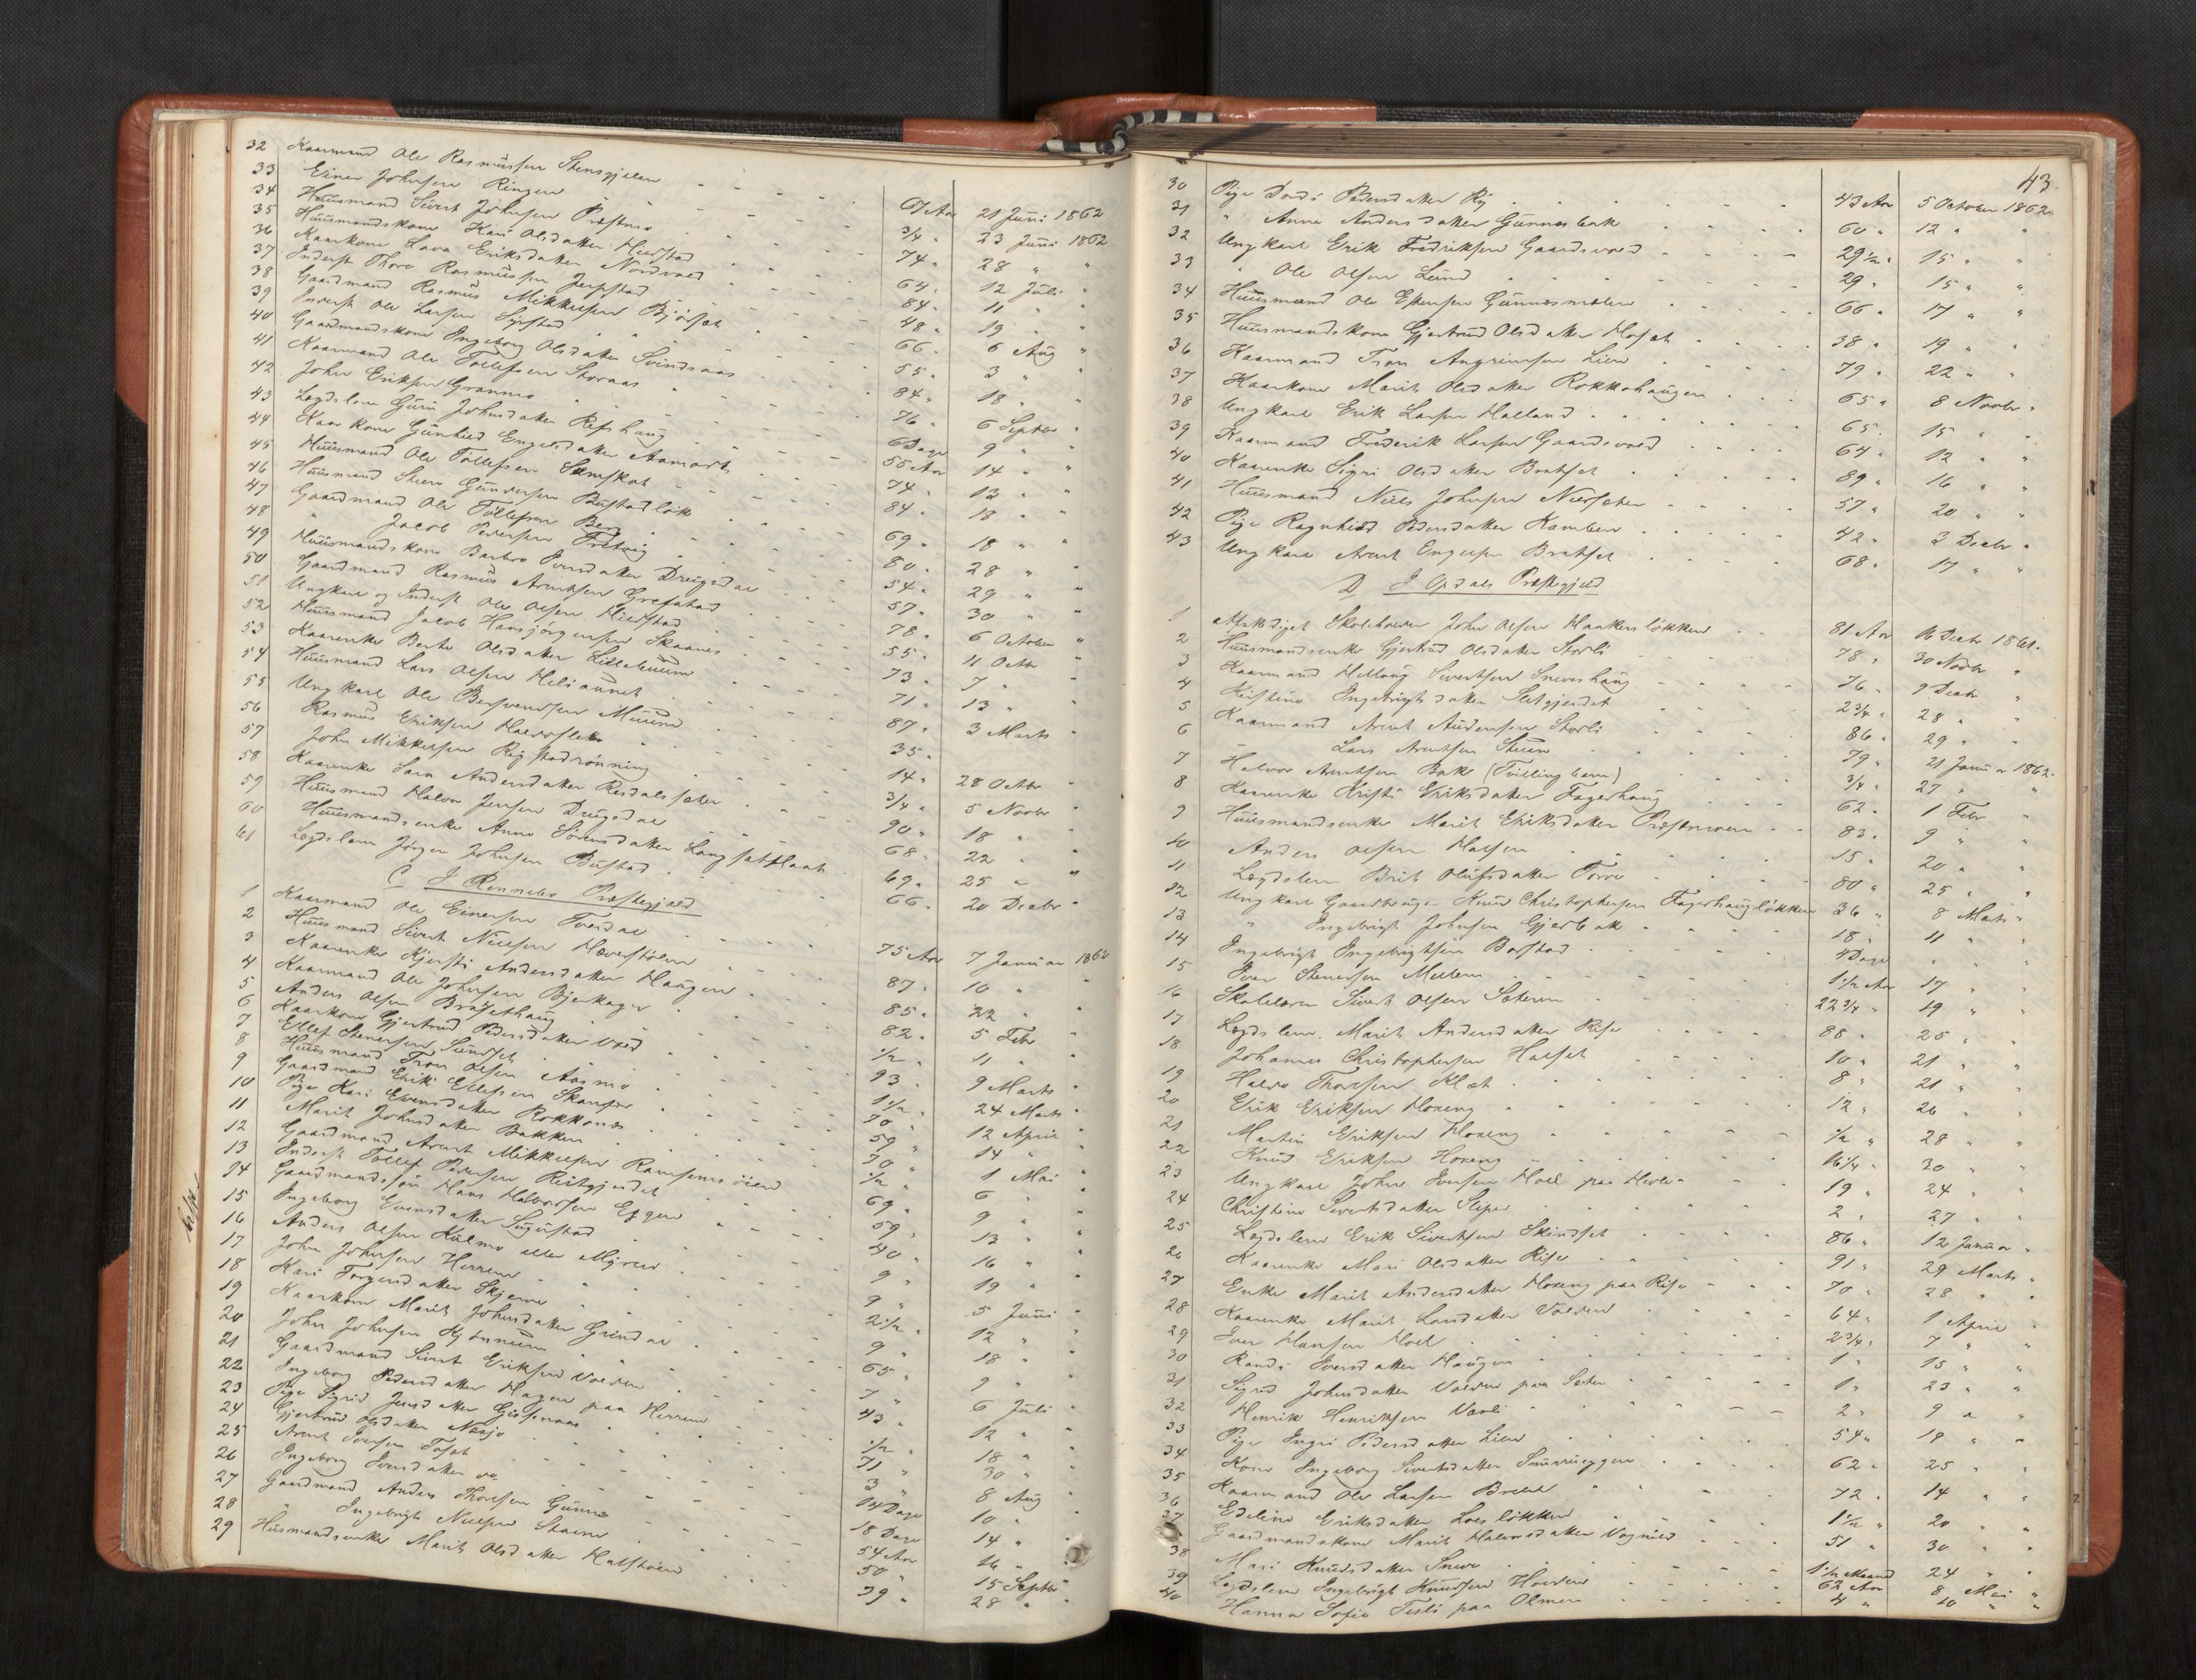 32 Kaarmand Ole Rasmussen Stensgjelen - - - 67 Aar 21 Juni 1862
33 Einer Johnsen Ringen - - - 3/4 " 23 Juni 1862
34 Huusmand Sivert Johnsen Præstmo - - - 74 " 28 " "
35 Huusmandskone Kari Olsdatter Hindstad - - - 64 " 12 Juli "
36 Kaarkone Lava Eriksdatter Nordvold - - - 84 " 11 " "
37 Inderst Thore Rasmussen Jerpstad - - - 48 " 19 " "
38 Gaardmand Rasmus Mikkelsen Bjørset - - - 66 " 6 Aug "
39 Inderst Ole Larsen Syrstad - - - 55 " 3 " "
40 Gaardmandskone Ingeborg Olsdatter Svindsaas - - - 84 " 18 " "
41 Kaarmand Ole Tollefsen Storaas - - - 76 " 6 Septbr "
42 John Eriksen Granmo - - - 6 Dage 9 " "
43 Lægdslem Guru Johnsdatter Refshaug - - - 55 Aar 14 " "
44 Kaarkone Gunhild Engelsdatter Aamodt - - - 74 " 13 " "
45 Huusmand Ole Tollefsen - - - 84 " 18 " "
46 Huusmand Steen Gundersen Bustadløk - - - 69 " 18 " "
47 Gaardmand Ole Tollefsen Berg - - - 80 " 28 " "
48 " Jacob Pedersen - - - 54 " 29 " "
49 Huusmandskone Barbro Iversdatter Drugdal - - - 57 " 30 " "
50 Gaardmand Rasmus Arntsen Grefstad - - - 78 " 6 October "
51 Ungkarl og Inderst Ole Olsen Hindstad - - - 55 " 11 Octbr "
52 Huusmand Jacob Hansjørgensen Skaanes - - - 73 " 7 " "
53 Kaarenke Berte Olsdatter Lillebuum - - - 71 " 13 " "
54 Huusmand Lars Olsen Heliaunet - - - 87 " 3 Marts "
55 Ungkarl Ole Bersvendsen Muun - - - 35 "
56 Rasmus Eriksen - - - 14 " 28 Octbr "
57 John Mikkelsen Rigstadrønning - - - 3/4 " 5 Novbr "
58 Kaarenke Sara Andersdatter Resdalssæter - - - 90 " 18 " "
59 Huusmand Halvor Jensen Drugdal - - - 68 " 22 " "
60 Huusmandsenke Anne Sørensdatter - - - 69 " 25 " "
61 Lægdslem Jørgen Johnsen Bustad - - - 66 " 20 Decbr "
C I Rennebo Præstegjæld
1 Kaarmand Ole Einersen Tverdal - - - 75 Aar 7 Januar 1862
2 Huusmand Sivert Nielsen Hæverstølen - - - 87 " 10 " "
3 Kaarenke Kjersti Andersdatter Haugen - - - 85 " 22 " "
4 Kaarmand Ole Johnsen Bjerkager - - - 82 " 5 Febr "
5 Anders Olsen Bræsethaug - - - 1/2 " 11 " "
6 Kaarkone Gjertrud Pedersdatter Vold - - - 93 " 9 Marts "
7 Ellef Stenersen Sundset - - - 1 1/2 " 24 Marts "
8 Huusmand Tron Olsen Aasmo - - - 70 " 12 April "
9 Gaardmand Erik Ellefsen Skamfer - - - 59 " 14 " "
10 Pige Kari Evensdatter Rokkones - - - 70 " 1 Mai "
11 Marit Johnsdatter Bakken - - - 1/2 " 6 " "
12 Gaardmand Arnt Mikkelsen Ramsemsøien - - - 69 " 9 " "
13 Inderst Tollef Pedersen Reitgjerdet - - - 59 " 13 " "
14 Gaardmandssøn Hans Halvorsen Eggen - - - 40 " 16 " "
15 Ingeborg Evensdatter Sugustad - - - 9 " 19 " "
16 Anders Olsen Kulmo eller Myren - - - 9 " 5 Juni "
17 John Johnsen Herrem - - - 2 1/2 " 12 " "
18 Kari Torgersdatter Skjerve - - - 9 " 18 " "
19 Kaarkone Marit Johnsdatter Grindal - - - 65 " 9 " "
20 John Johnsen - - - 7 " 6 Juli "
21 Gaardmand Sivert Eriksen Volden - - - 43 " 12 " "
22 Ingeborg Pedersdatter Hagen paa Herrem - - - 1/2 " 18 " "
23 Pige Sigrid Jensdatter Gisnaas - - - 71 " 30 " "
24 Gjertrud Olsdatter Næsjo - - - 3 " 8 Aug "
25 Arnt Iversen Toset - - - 14 Dage 10 " "
26 Ingeborg Iversdatter do - - - 18 Dage 14 " "
27 Gaardmand Anders Thoresen Gunnes - - - 54 Aar 16 " "
28 " Ingebrigt Nielsen Stamne - - - 50 " 15 Septbr "
29 Huusmandsenke Marit Olsdatter Halstøen - - - 79 " 28 " "
43
30 Pige Dordi Pedersdatter Ry - - - 43 Aar 5 October 1862
31 " Anne Andersdatter Gunnesbak - - - 60 " 12 " "
32 Ungkarl Erik Fredriksen Gaardsvold - - - 29 1/2 " 15 " "
33 " Ole Olsen Lund - - - 29 " 15 " "
34 Huusmand Ole Estensen Gunnesmælen - - - 66 " 17 " "
35 Huusmandskone Gjertrud Olsdatter Hoset - - - 38 " 19 " "
36 Kaarmand Tron Angrimsen Lien - - - 79 " 22 " "
37 Kaarkone Marit Olsdatter Rokkohaugen - - - 65 " 8 Novbr "
38 Ungkarl Erik Larsen Halland - - - 65 " 15 " "
39 Kaarmand Frederik Larsen Gaardsvold - - - 64 " 12 " "
40 Kaarenke Sigri Olsdatter Bratset - - - 89 " 16 " "
41 Huusmand Niels Johnsen - - - 57 " 20 " "
42 Pige Ragnhild Pedersdatter Kamben - - - 42 " 3 Decbr "
43 Ungkarl Arnt Engelsen Bratset - - - 68 " 17 " "
D I Opdals Præstegjeld
1 Afskediget Skoleholder John Olsen Haakersløkken - - 81 Aar 16 Decbr 1861.
2 Huusmandsenke Gjertrud Olsdatter Storli - - - 78 " 30 Novbr "
3 Kaarmand Hellaug Sivertsen Sneveshaug - - - 76 " 9 Decbr "
4 Kristine Ingebrigtsdatter Sletgjerdet - - - 2 3/4 " 28 " "
5 Kaarmand Arnt Audensen Storli - - - 86 " 29 " "
6 - Lars Arntsen Stuen - - - 79 " 21 Januar 1862.
7 Halvor Arntsen Bak (Tvillingbarn) - - - 3/4 " 27 " "
8 Kaarenke Kristi Eriksdatter Fagerhaug - - - 62 " 1 Febr "
9 Huusmandsenke Marit Eriksdatter - - - 83 " 9 " "
10 Anders Olsen - - - 15 " 20 " "
11 Lægdslem Brit Olufsdatter Torve - - - 80 " 25 " "
12 Ungkarl Gaardbruger Knud Christophersen Fagerhaugløkken 36 " 8 Marts "
13 " Ingebrigt Johnsen Gjerbak - - - 18 " 11 " "
14 Ingebrigt Ingebrigtsen Borstad - - - 4 Dage " " "
15 Iver Stenersen Mellem - - - 1 1/2 Aar 17 " "
16 Skolelærer Sivert Olsen Sæteren - - - 22 3/4 " 19 " "
17 Lægdslem Marit Andersdatter Rise - - - 88 " 25 " "
18 Johannes Christophersen Halset - - - 10 " 21 " "
19 Halvor Thoresen Klæt - - - 8 " 21 " "
20 Erik Eriksen Hoxeng - - - 12 " 26 " "
21 Martin Eriksen Hoxeng - - - 1/2 " 28 " "
22 Knud Eriksen Hoxeng - - - 16 1/4 " 30 " "
23 Ungkarl John Iversen Hoel paa - - - 19 " 24 " "
24 Christine Sivertsdatter Sleper - - - 2 " 27 " "
25 Lægdslem Erik Sivertsen Skindset - - - 86 " 12 Januar "
26 Kaarenke Mari Olsdatter Rise - - - 91 " 29 Marts "
27 Enke Marit Andersdatter Hoxeng paa Rise - - - 70 " 28 " "
28 Kaarenke Marit Larsdatter Volden - - - 64 " 1 April "
29 Iver Hansen Hoel - - - 2 3/4 " 7 " "
30 Randi Iversdatter Haugen - - - 1 " 15 " "
31 Sigrid Johnsdatter Volden paa Sæter - - - 1 " 23 " "
32 Henrik Henriksen Vorli - - - 2 " 9 " "
33 Pige Ingri Pedersdatter Lien - - - 54 " 19 " "
34 Kone Ingeborg Sivertsdatter - - - 62 " 25 " "
35 Kaarmand Ole Larsen - - - 72 " 14 " "
36 Edeline Eriksdatter Loesløkken - - - 1 1/2 " 20 " "
37 Gaardmandskone Marit Halvorsdatter Vognild - - - 51 " 30 " "
38 Mari Knudsdatter Sneve - - - 1 1/2 Maaned 24 " "
39 Lægdslem Ingebrigt Knudsen Hoelen - - - 62 Aar 8 Mai "
40 Hanna Sofie Tesli paa Olmen - - - 4 " 10 " "